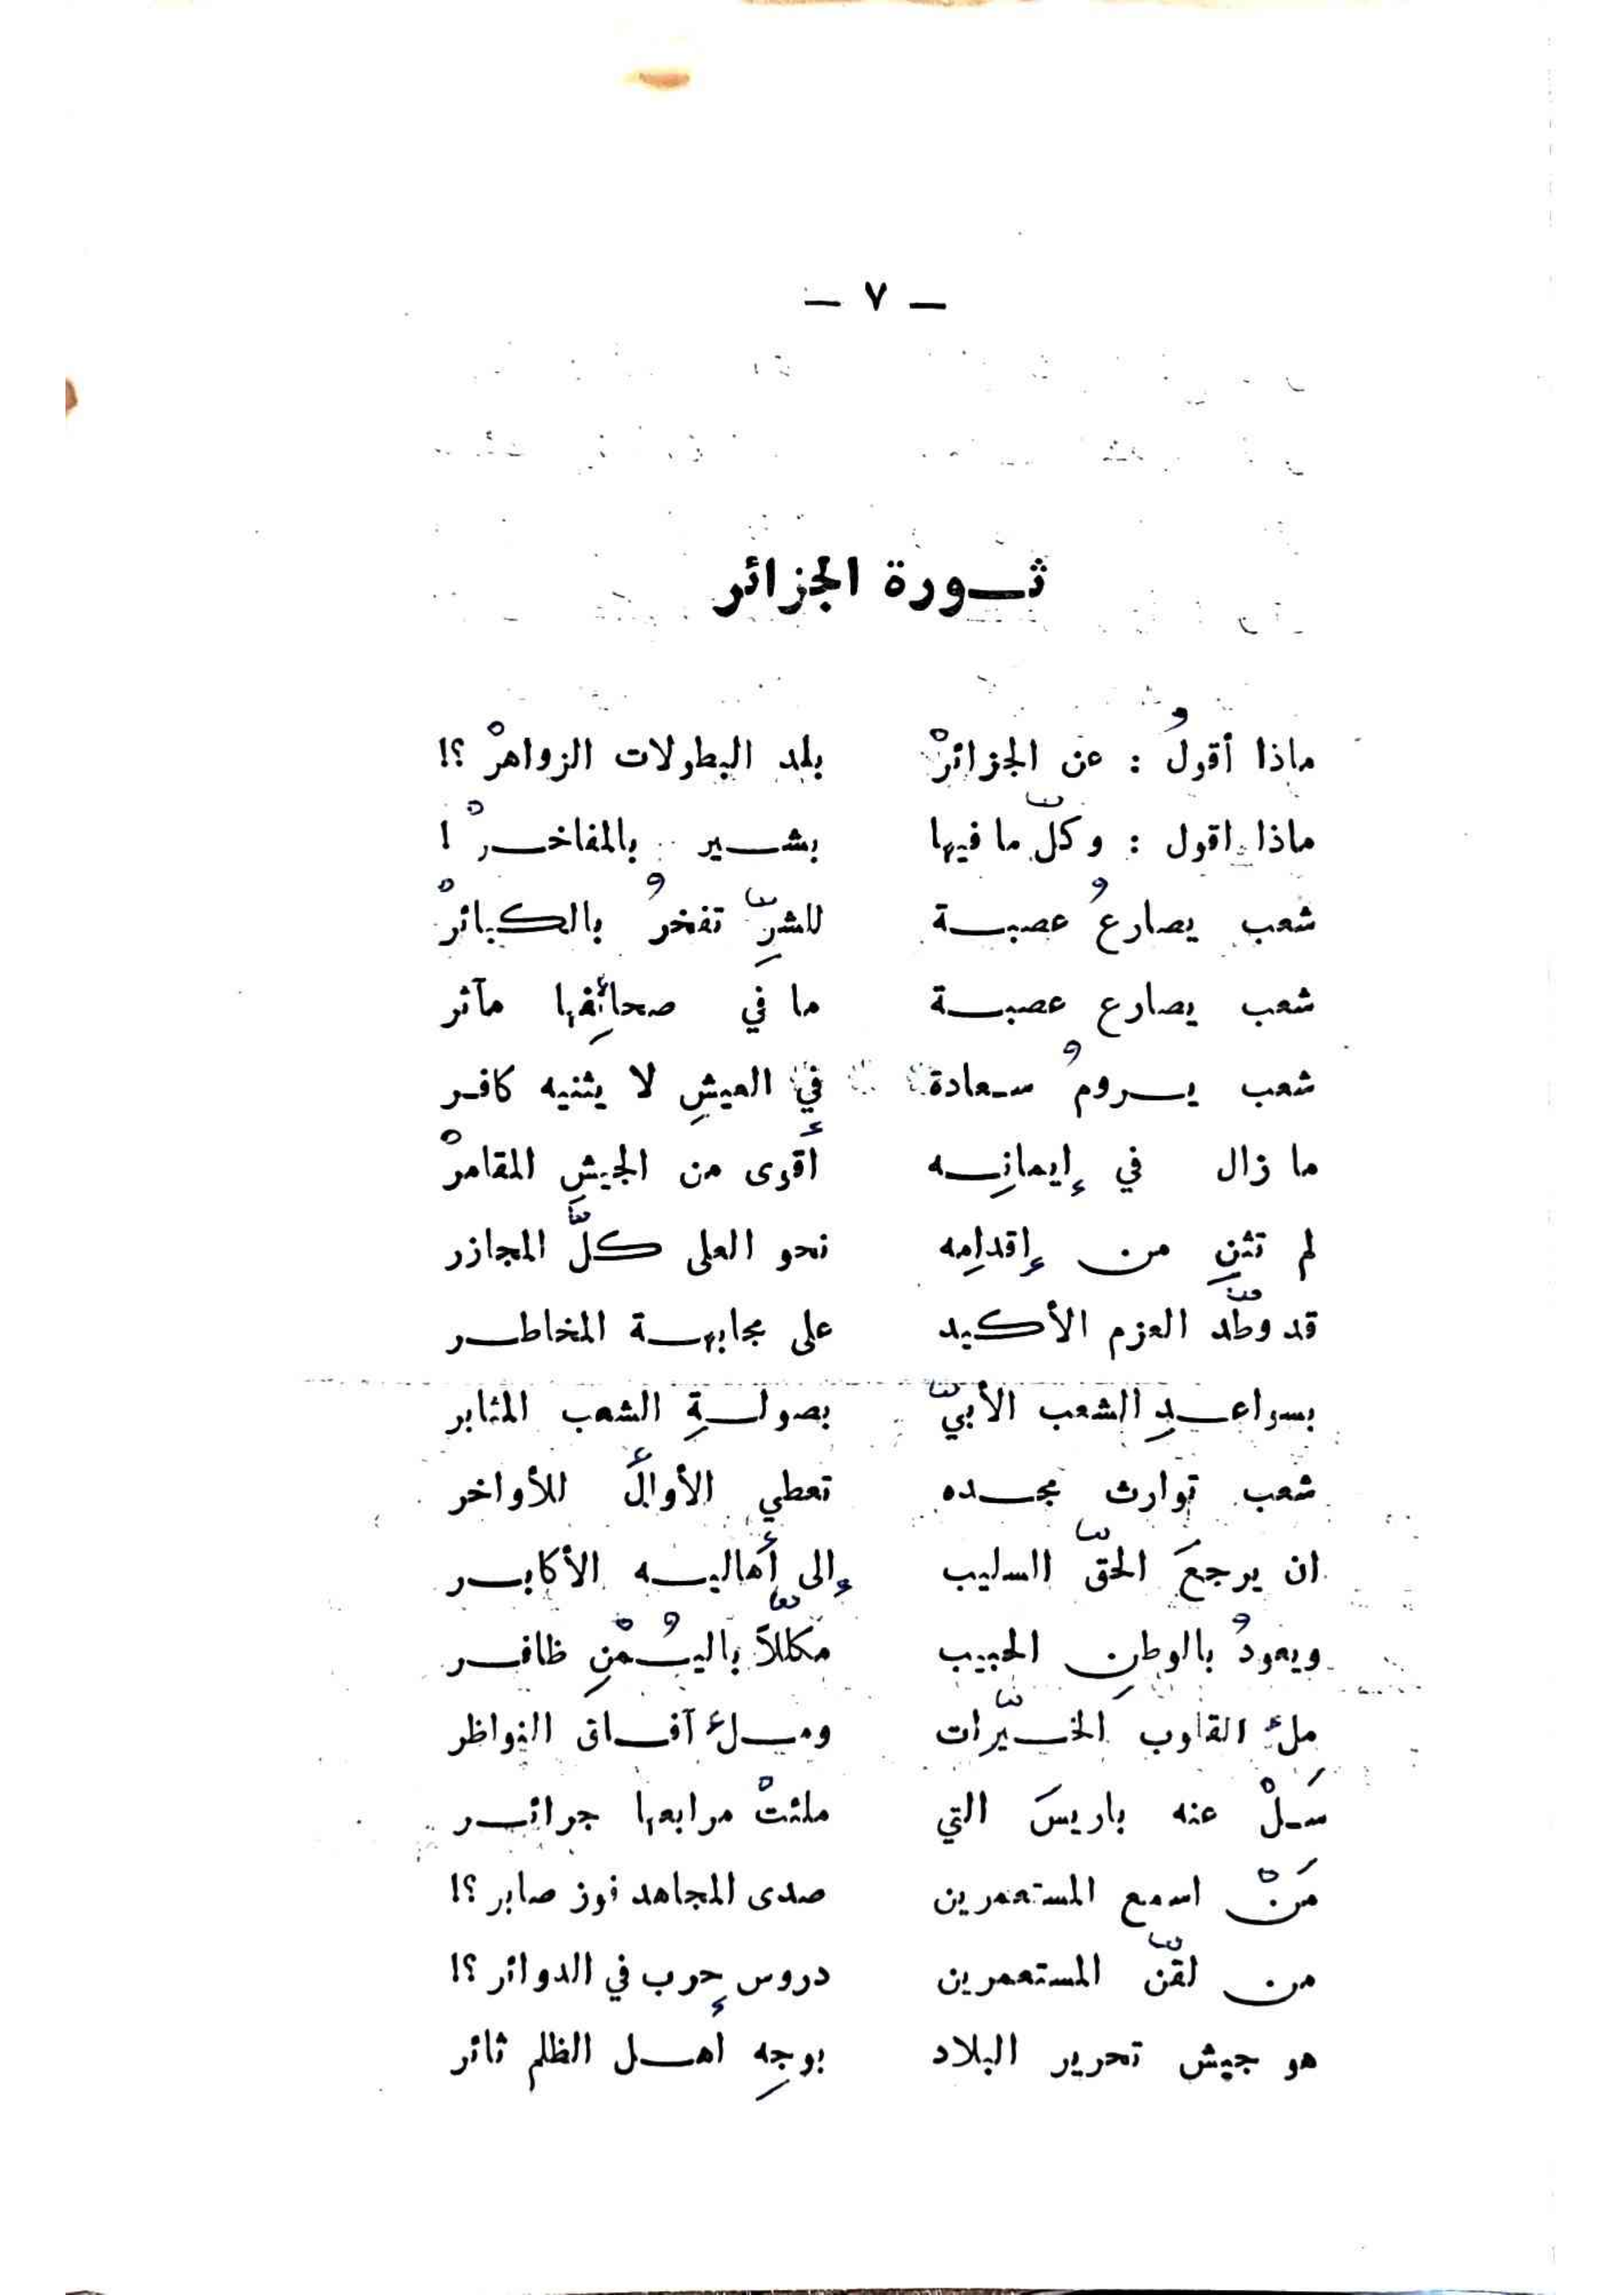 — ٧ —
ثــورة الجزائر
ماذا أقولُ : عن الجزائرْ بلد البطولات الزواهرْ ؟!
ماذا اقول : وكلّ ما فيها بشـــير بالمفاخــرْ !
شعب يصارعُ عصبــة للشرِّ تفخرُ بالكبائرْ
شعب يصارع عصبــة ما في صحائِفها مآثر
شعب يــرومُ سـعادة في العيشِ لا يثنيه كافـر
ما زال في إيمانِــه أقوى من الجيشِ المقامرْ
لم تثنِ من إقدامِه نحو العلى كلُّ المجازر
قد وطّد العزم الأكيد على مجابهــة المخاطــر
بسواعــدِ الشعب الأبيّ بصولــةِ الشعب المثابر
شعب توارث مجــده تعطي الأوالُ للأواخر
ان يرجعَ الحقّ السليب إلى أهاليــه الأكابــر
ويعودُ بالوطنِ الحبيب مكللّاً باليُــمْنِ ظافــر
مِلء القلوب الخــيّرات ومــلء آفــاق النواظر
سَـلْ عنه باريسَ التي ملئتْ مرابعها جرائــر
مَنْ اسمع المستعمرين صدى المجاهد فوز صابر ؟!
من لقّن المستعمرين دروس حرب في الدوائر ؟!
هو جيش تحرير البلاد بوجِه اهــل الظلم ثائر